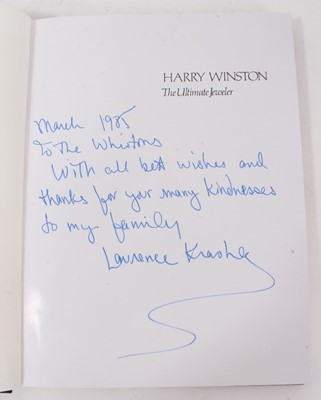 HARRY WINSTON
The Ultimate Jeweler
March 1985
To the Whistons
With all best wishes and
thanks for your many kindnesses
to my family
Laurence Krashes